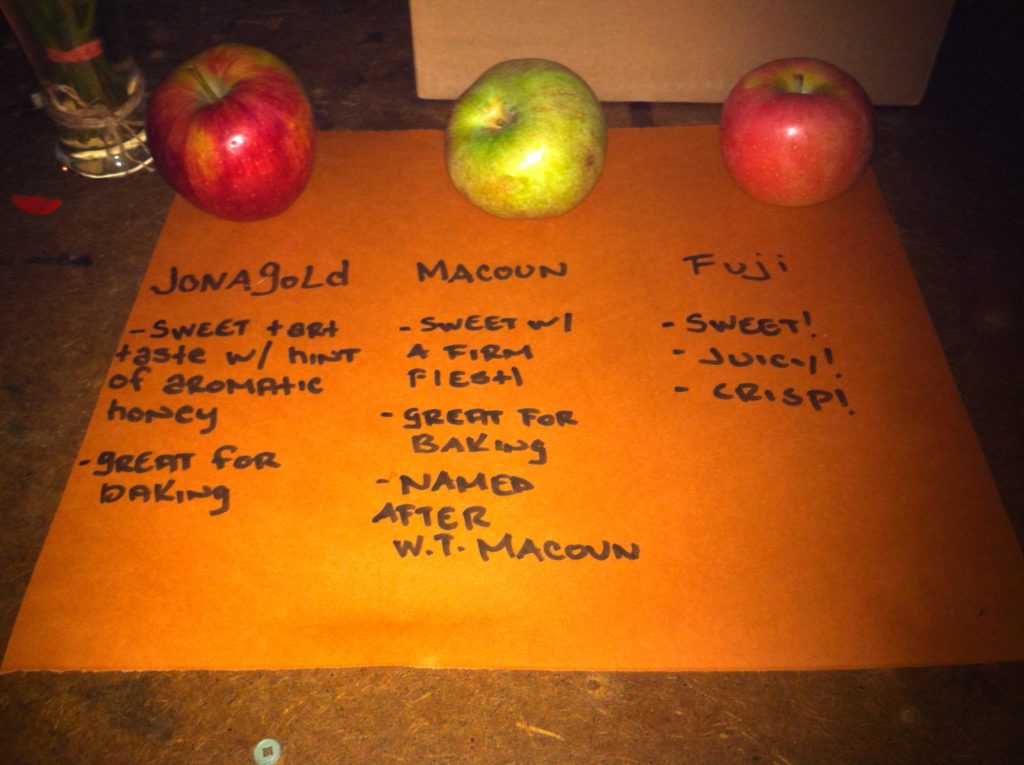 JONAgoLd
- SWEET tart
taste w/ hint
of aromatic
honey
- gREAT foR
bAKINg
MACOUN
- SWEET w/
A FIRM
FlESH
- GREAT FOR
BAKINg
- NAMED
AFTER
W.T. MACOUN
Fuji
- SWEET!
- JUICY!
- CRISP!